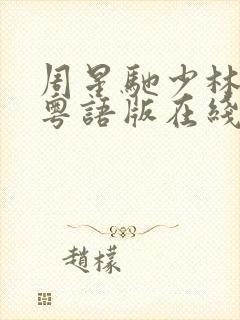 周星馳少林
粵語版在綫
趙檬